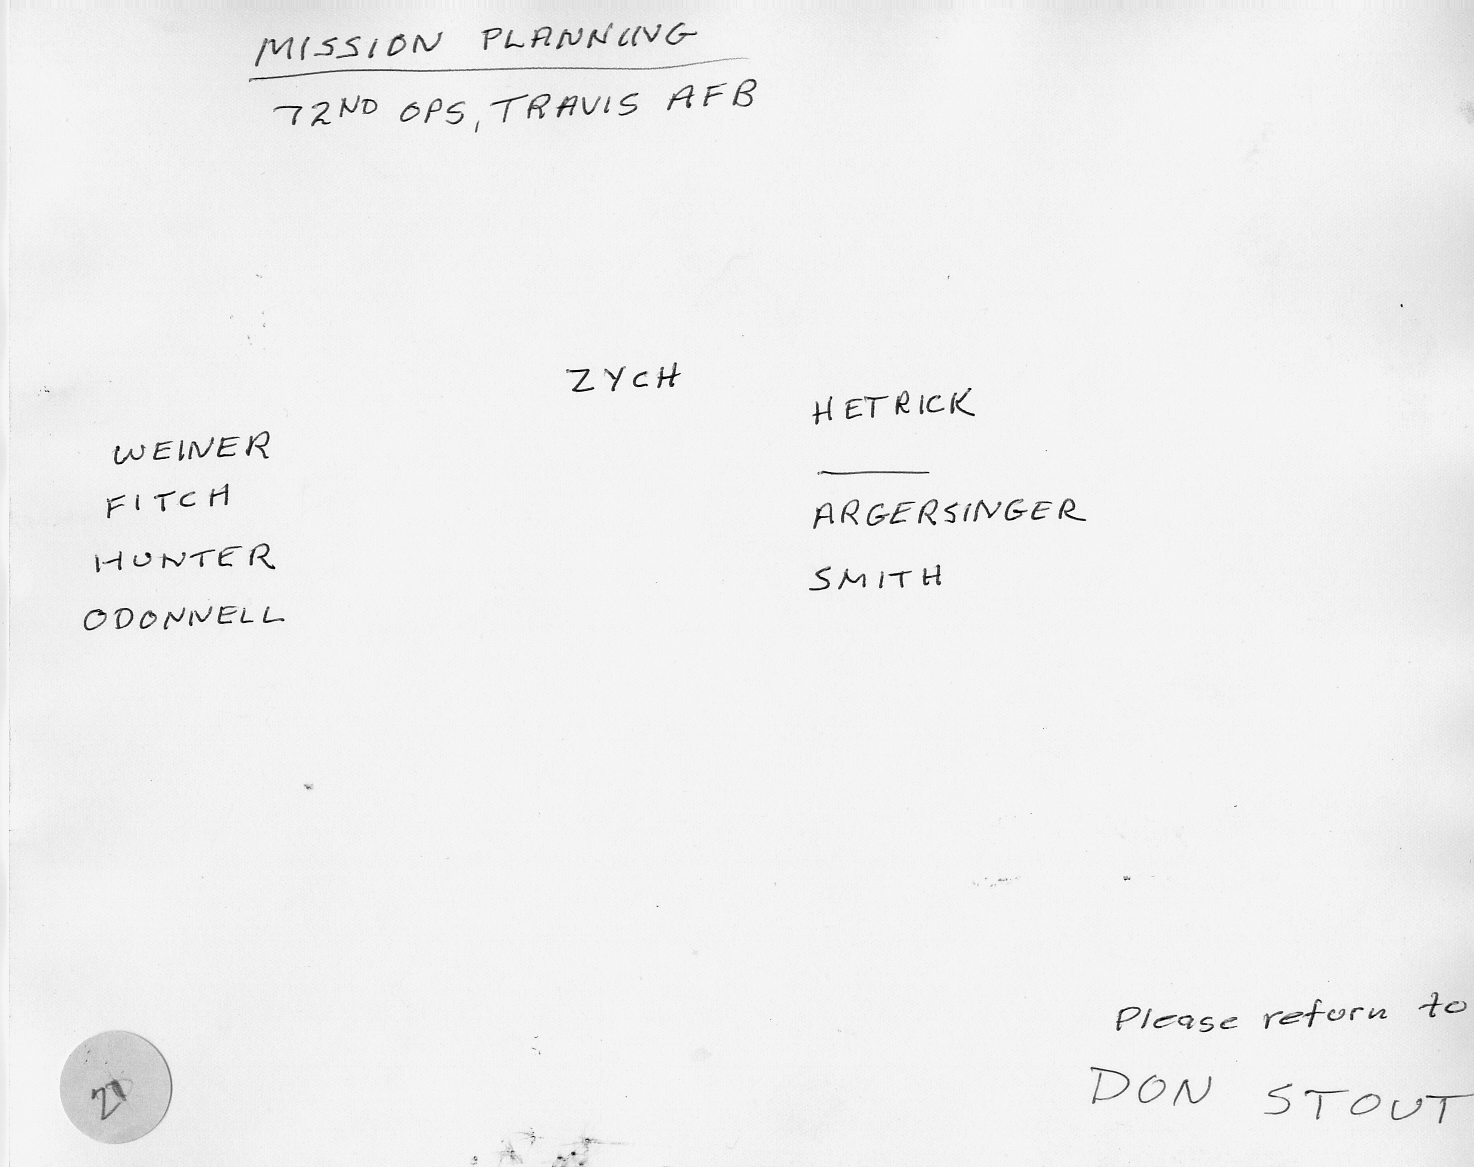 MISSION PLANNING
72ND OPS, TRAVIS AFB
ZYCH
HETRICK
WEINER
FITCH
ARGERSINGER
HUNTER
SMITH
ODONNELL
Please return to
DON STOUT